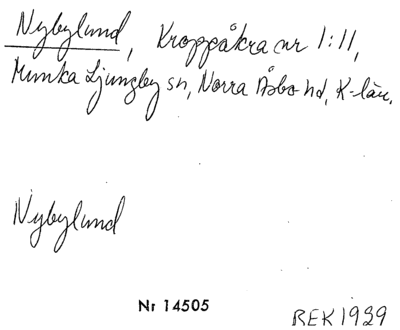 Nybylund, Kroppåkra nr 1:11,
Munka Ljungby sn, Norra Åsbo hd, K-län.
Nybylund
Nr 14505
REK 1939